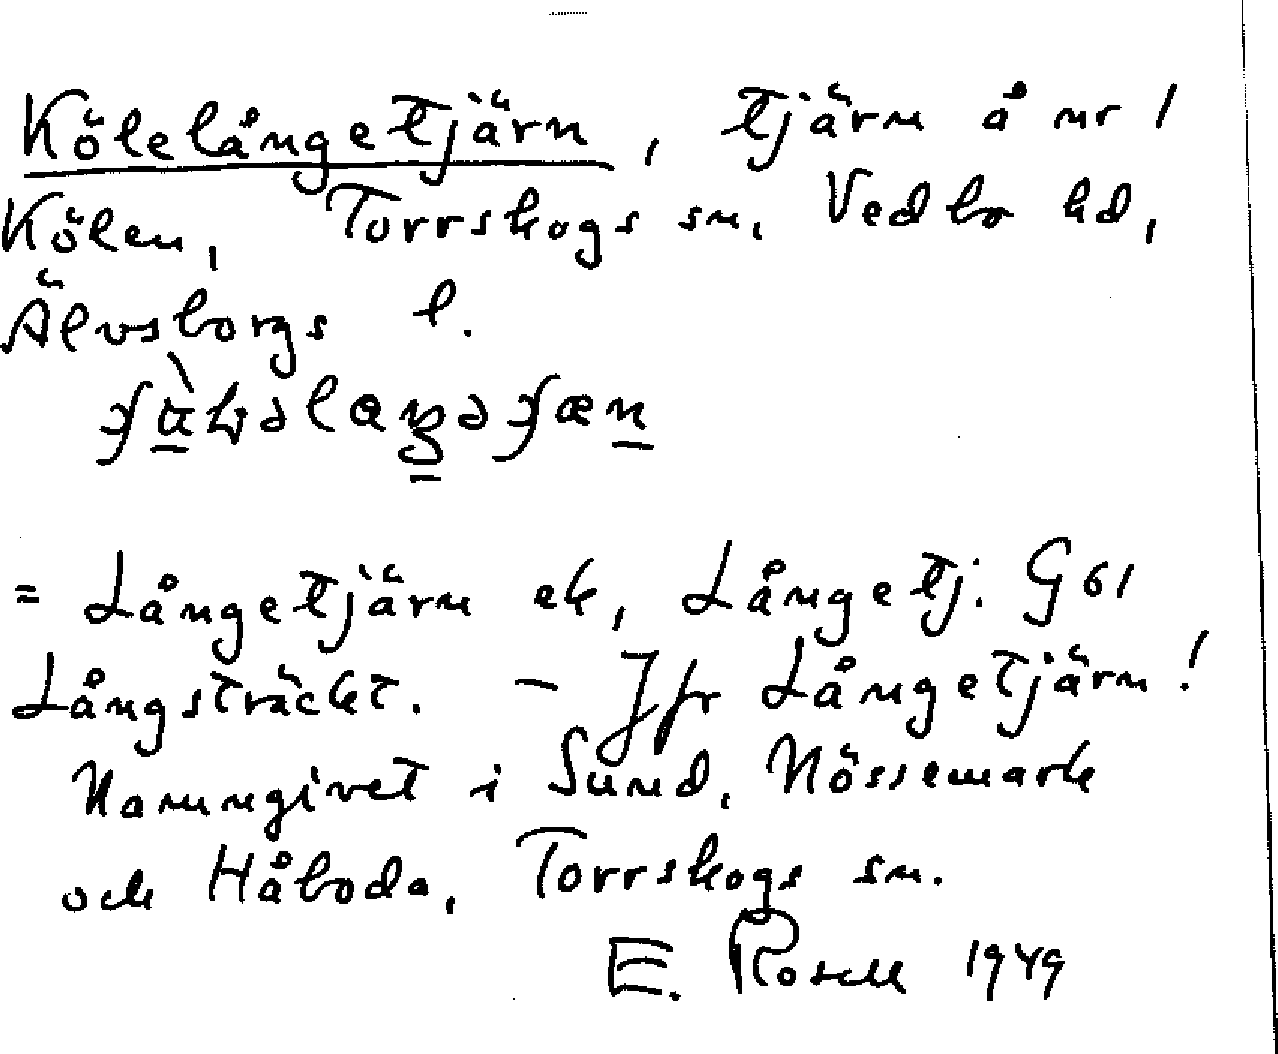 Kölelångetjärn, tjärn å nr 1
Kölen, Torrskogs sn. Vedbo hd,
Älvsborgs l.
= Långetjärn ek, Långetj. G 61
Långsträckt. – Jfr Långetjärn!
Namngivet i Sund, Nössemark
och Håboda, Torrskogs sn.
E. Rosell 1949